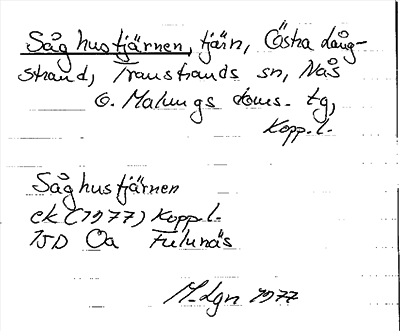 Såghustjärnen, tjärn, Östra Lång-
strand, Transtrands sn, Nås
o. Malungs doms. tg,
Kopp. l.
Såghustjärnen
ek (1977) Kopp. l.
15D Öa Fulunäs
M-Lgn 1977